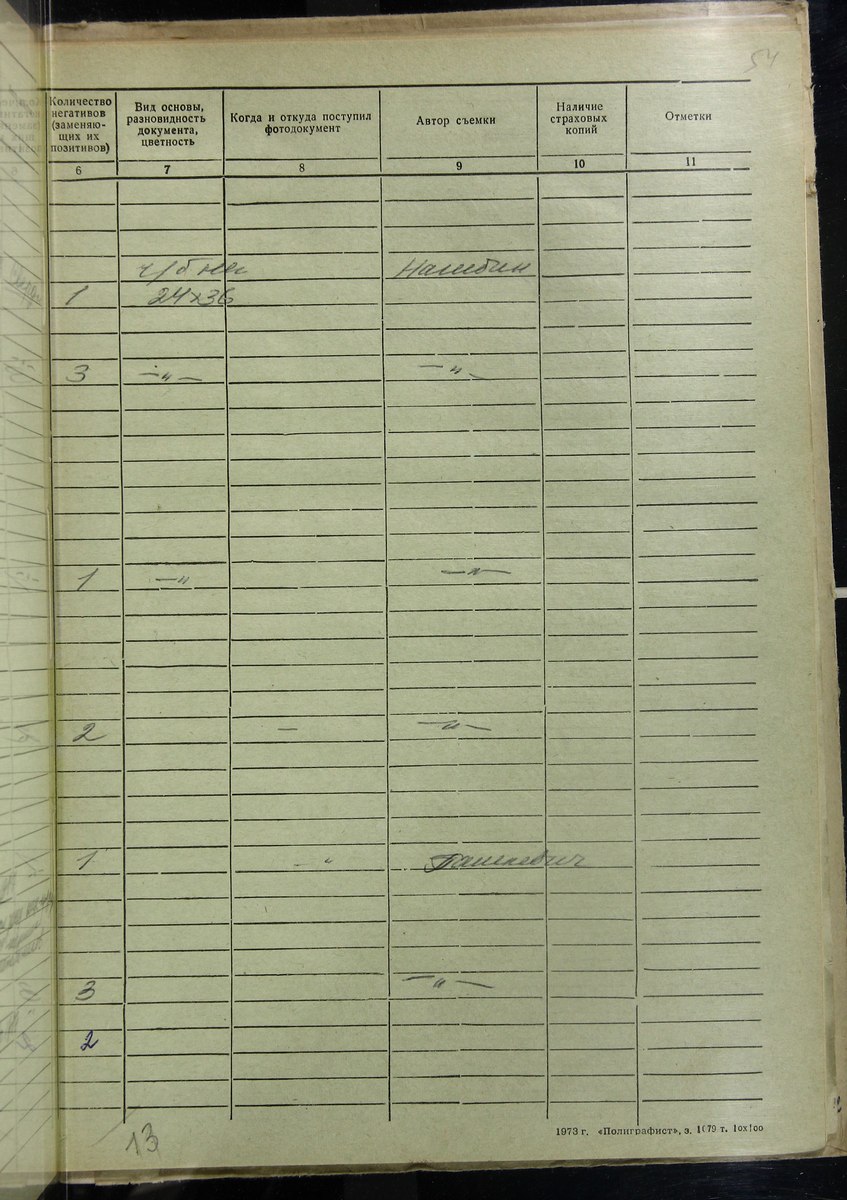 54
Количество
негативов
(заменяю-
щих их
позитивов)
Вид основы,
разновидность
документа,
цветность
Когда и откуда поступил
фотодокумент
Автор съемки
Наличие
страховых
копий
Отметки
6 7 8 9 10 11
ч/б нег
1 24х36
3 —„— —„—
1 —„ —„—
2 — —„—
1 „ Пашкевич
3 —„—
2
13
1973 г. «Полиграфист», з. 1079 т. 10х100